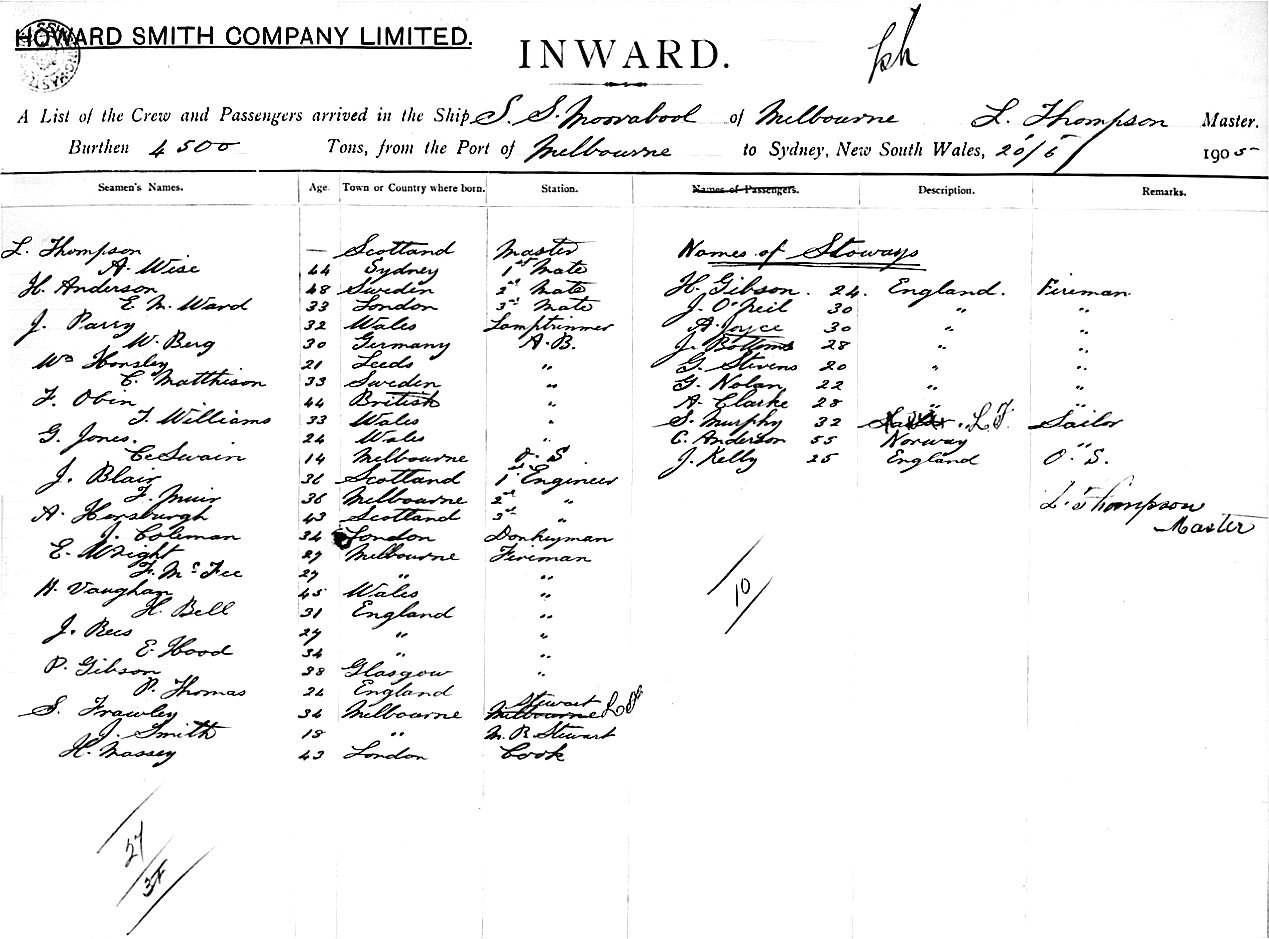 HOWARD SMITH COMPANY LIMITED.
INWARD.
A List of the Crew and Passengers arrived in the Ship S. S. Moorabool of Melbourne L. Thompson Master.
Burthen 4500 Tons, from the Port of Melbourne to Sydney, New South Wales, 20/5/ 1905
Seamen's Names. Age. Town or Country where born. Station. Names of Passengers. Description. Remarks.
Names of Stoways
L. Thompson — Scotland Master
A. Wise 44 Sydney 1st Mate
H. Anderson 48 Sweden 2nd Mate
E. M. Ward 33 London 3rd Mate
J. Parry 32 Wales Lamptrimmer
W. Berg 30 Germany A.B.
Wm Horsley 21 Leeds "
C. Matthison 33 Sweden "
F. Obin 44 British "
T. Williams 33 Wales "
G. Jones. 24 Wales "
C. Swain 14 Melbourne O. S
J. Blair 36 Scotland 1st Engineer
F. Muir 36 Melbourne 2nd "
A. Horsburgh 43 Scotland 3rd "
J. Coleman 34 London Donkeyman
E. Wright 27 Melbourne Fireman
F. McFee 27 " "
H. Vaughan 45 Wales "
H. Bell 31 England "
J. Rees 27 " "
E. Hood 34 " "
P. Gibson 38 Glasgow "
P. Thomas 24 England
S. Frawley 34 Melbourne Stewart Melbourne LT
J. Smith 18 " M. R. Stewart
H. Massey 43 London Cook
H. Gibson. 24. England. Fireman
J. O'Neil 30 " "
A. Joyce 30 " "
J. Bottoms 28 " "
G. Stevens 20 " "
G. Nolan 22 " "
A. Clarke 28 " "
S. Murphy 32 L T. Sailor
C. Anderson 55 Norway "
J. Kelly 25 England O. S.
L. Thompson
Master
10
27